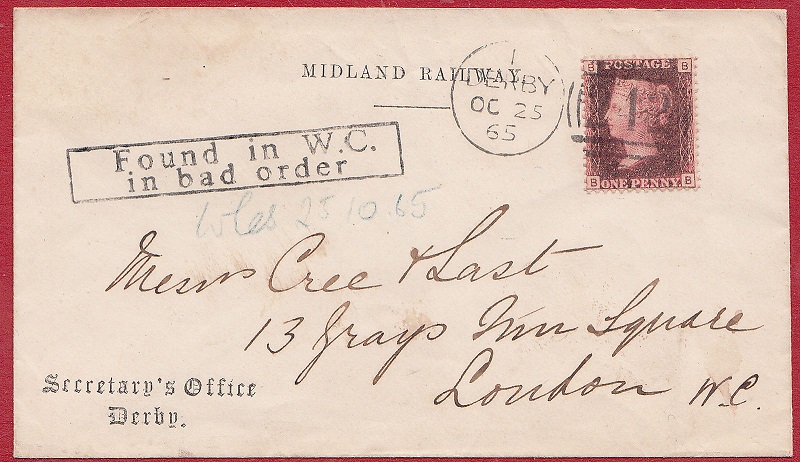 MIDLAND RAILWAY.
1
DERBY
OC 25
65
B POSTAGE B
B ONE PENNY B
Found in W.C.
in bad order
25 10 65
Messrs Cree & Last
13 Grays Inn Square
London W.C.
Secretary's Office
Derby.